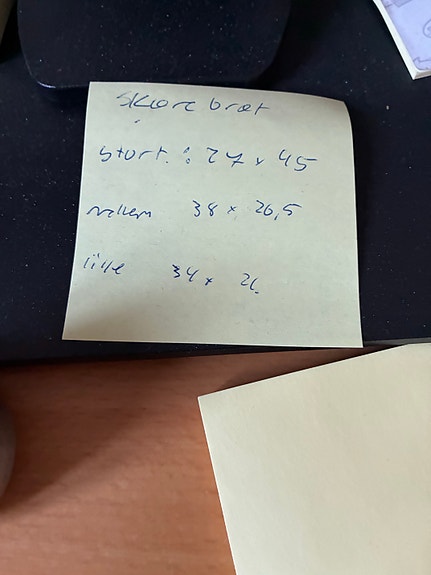 skære bræt
stort : 27 x 45
mellem 38 x 26,5
lille 34 x